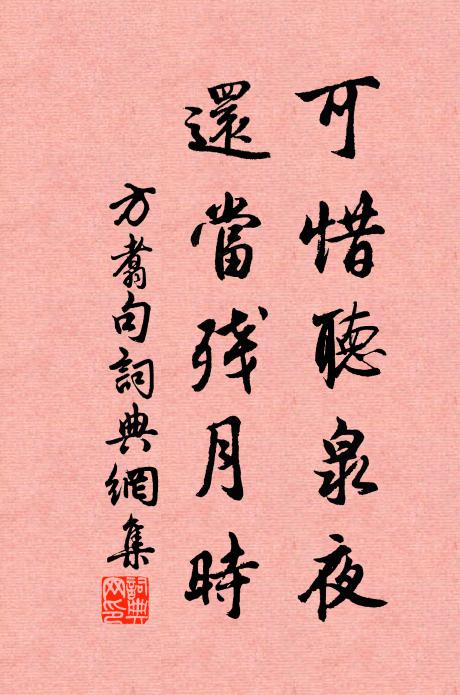 可惜聽泉夜
還當殘月時
方翥句詞典網集
詞典網印